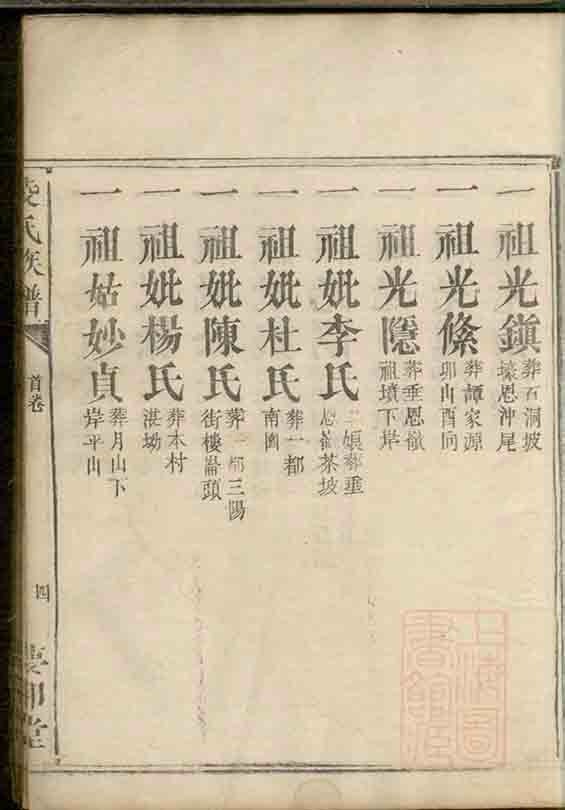 一祖光鎮葬石洞坡
恩沖尾
一祖光絛葬譚家源
卯山酉向
一祖光隱葬垂恩嶺
祖墳下岸
一祖妣李氏娘葬垂
茶坡
一祖妣杜氏葬一都
南
一祖妣陳氏葬一都三陽
街樓崙頭
一祖妣楊氏葬本村
湛坳
一祖姑妙貞葬月山下
岸平山
氏族譜
首卷
四
堂
上海圖
書館藏